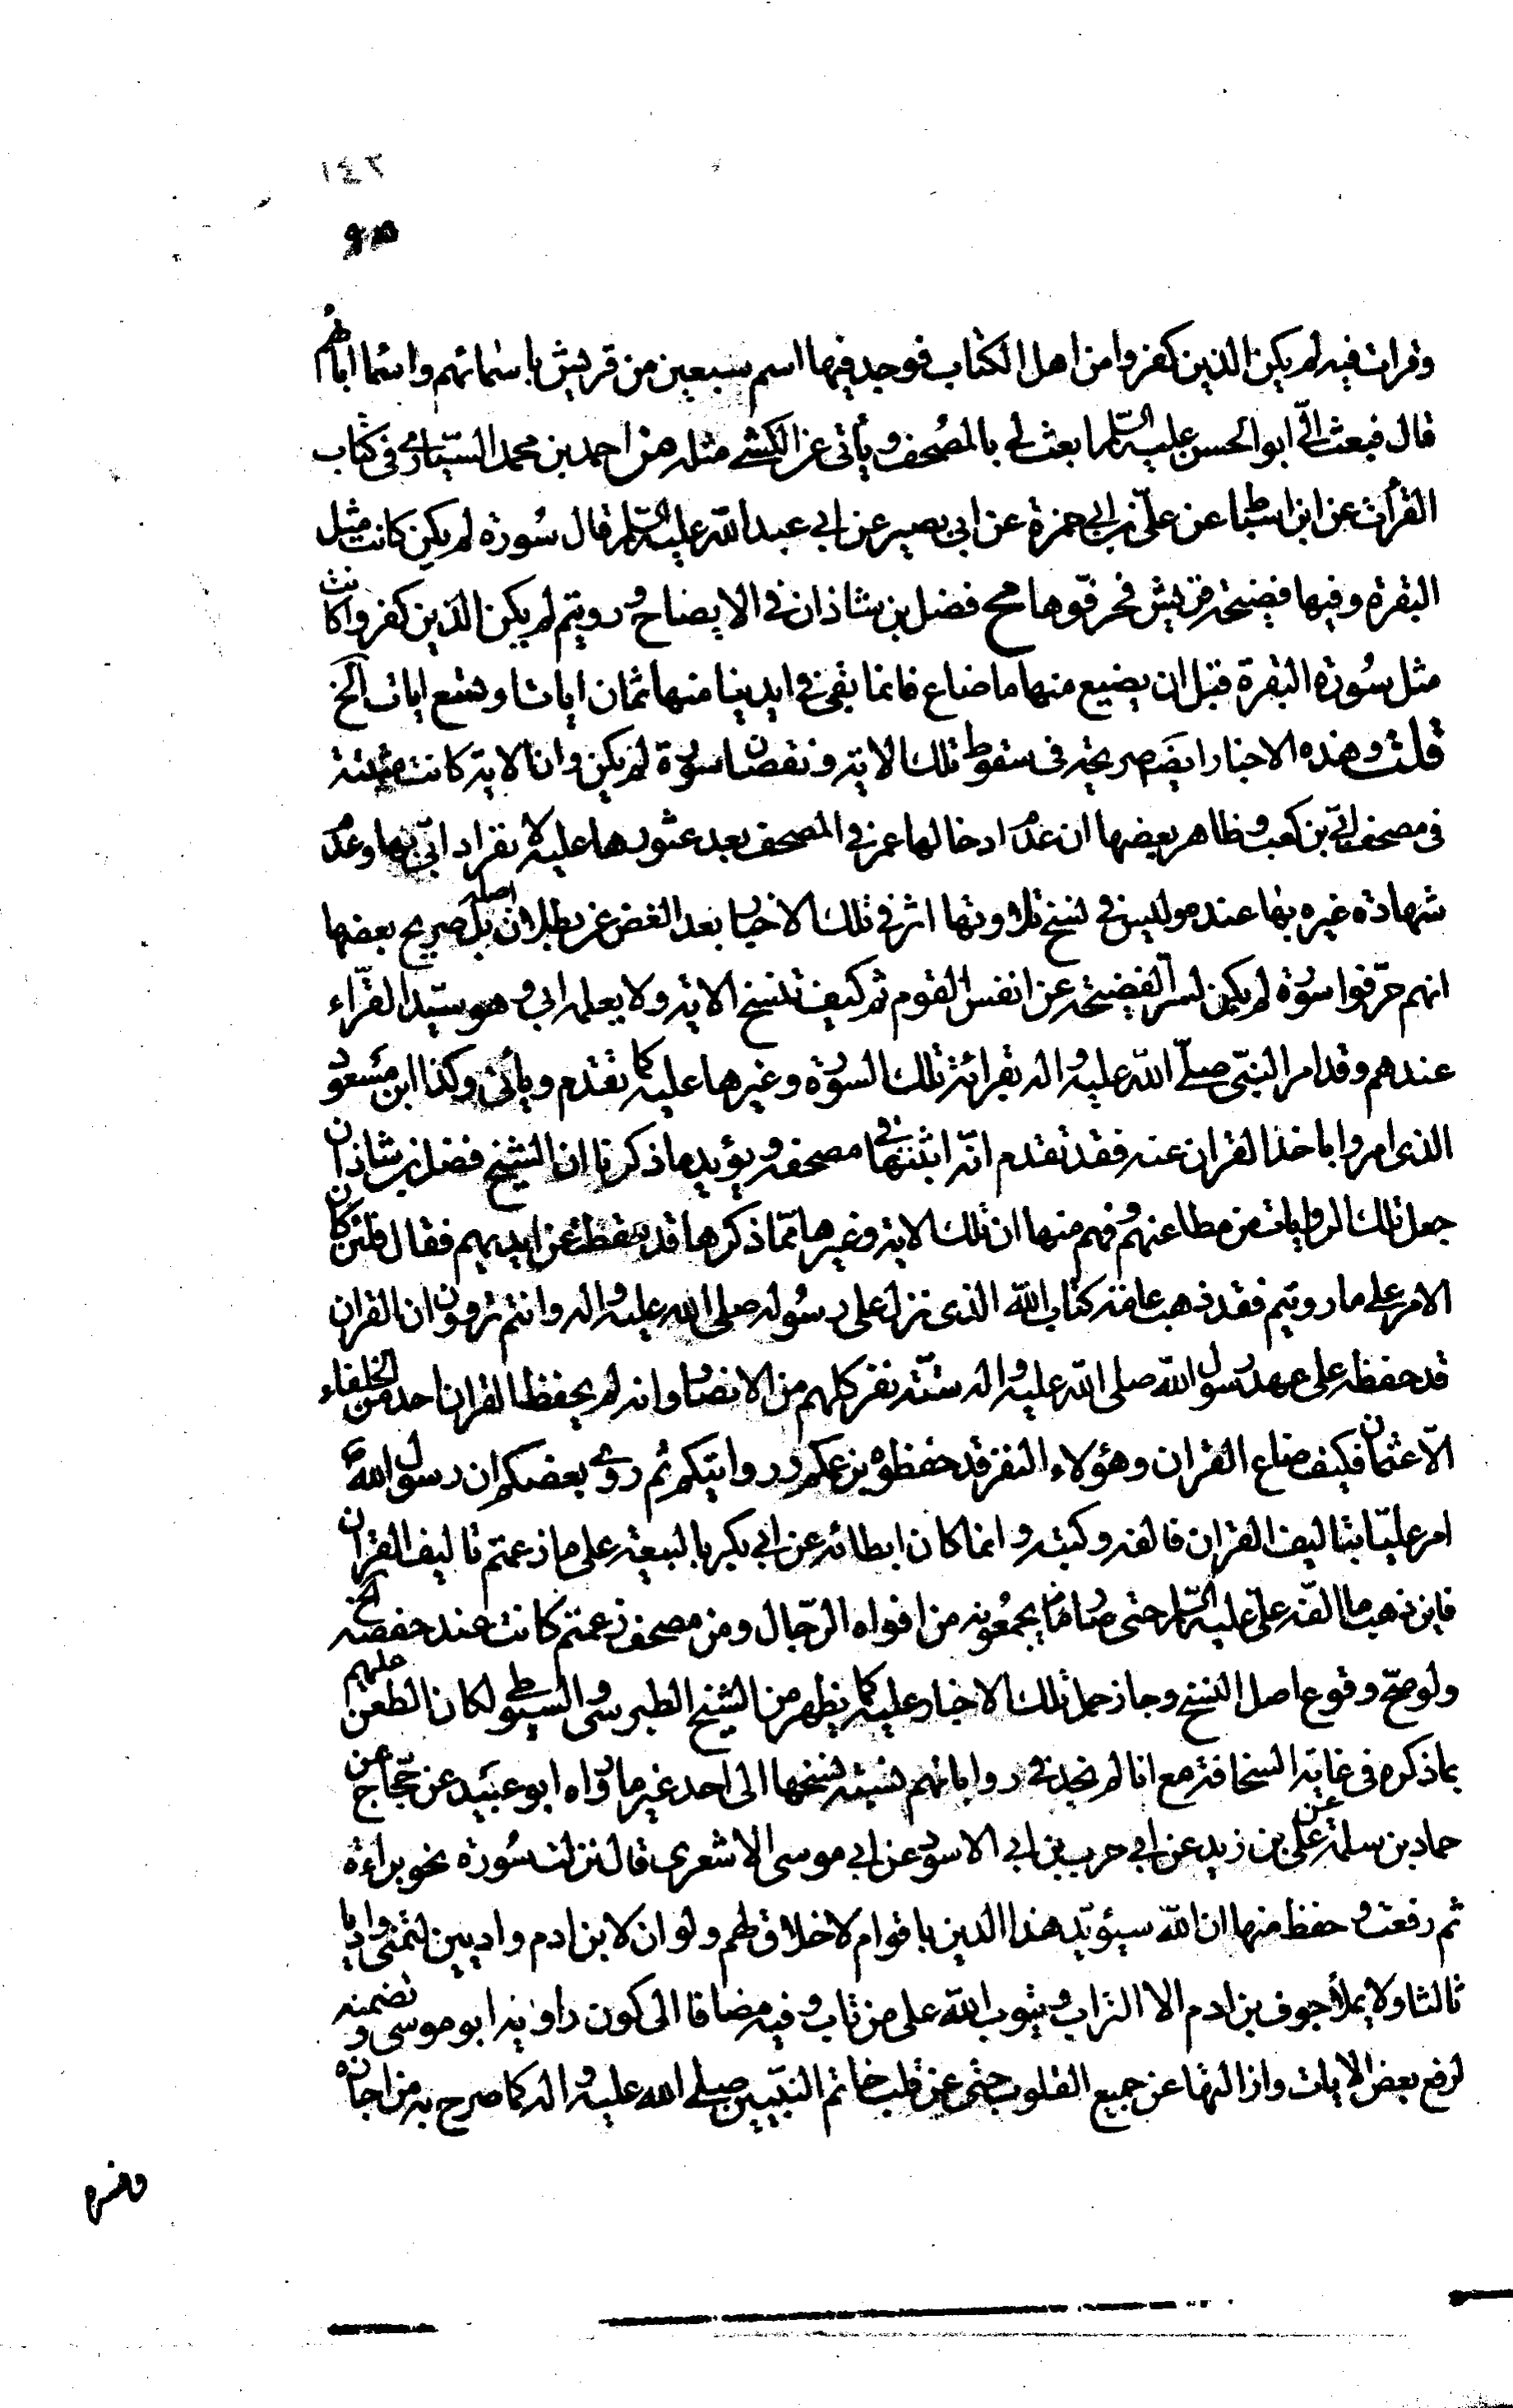 ١٤٢
وقرات فيه لم يكن الذين كفروا من اهل الكتاب فوجد فيها اسم سبعين من قريش باسمائهم واسماء ابائهم
قال فبعث الىّ ابو الحسن عليه السّلم ابعث لى بالمصحف ويأتى عن الكشى مثله هن احمد بن محمد السّيّارى فى كتاب
القرأت عن ابن اسباط عن علىّ بن ابى حمزة عن ابى بصير عن ابى عبد الله عليه السّلم قال سورة لم يكن كانت مثل
البقرة وفيها فضيحة قريش فحرّفوها مح فضل بن شاذان فى الايضاح ورويتم لم يكن الذين كفروا كانت
مثل سورة البقرة قبل ان يضيع منها ما ضاع فانما بقى فى ايدينا منها ثمان ايات او تسع ايات الخ
قلت وهذه الاخبار ايضا صريحة فى سقوط تلك الاية ونقصان سورة لم يكن وان الاية كانت مثبتة
فى مصحف ابىّ بن كعب وظاهر بعضها ان عدم ادخالها عمر فى المصحف بعد عثورها عليه لانفراد ابىّ بها وعدم
شهادة غيره بها عنده وليس فى نسخ تلاوتها اثر فى تلك الاخبار بعد الغض عن بطلان اصله بل صريح بعضها
انهم حرّفوا سورة لم يكن لستر الفضيحة عن انفس القوم ثم كيف تنسخ الاية ولا يعلم ابى وهو سيّد القرّاء
عندهم وقد امر النبىّ صلّى الله عليه واله بقرائة تلك السورة وغيرها عليه كما تقدم ويأتى وكذا ابن مسعود
الذى امروا باخذ القران عنه فقد تقدم انّه اثبتها فى مصحفه ويؤيد ما ذكرنا ان الشيخ فضل بن شاذان
جعل تلك الروايات من مطاعنهم وفهم منها ان تلك الاية وغيرها ممّا ذكرها قد سقط عن ايديهم فقال فلئن كان
الامر على ما رويتم فقد ذهب عامة كتاب الله الذى نزل على رسوله صلى الله عليه واله وانتم تروون ان القران
قد حفظه على عهد رسول الله صلى الله عليه واله ستّة نفر كلهم من الانصار وانه لم يحفظ القران احد من الخلفاء
الّا عثمان فكيف ضاع القران وهؤلاء النفر قد حفظوه بزعمكم وروايتكم ثم روى بعضكم ان رسول الله ص
امر عليّا بتاليف القران فالفه وكتبه وانما كان ابطائه عن ابى بكر بالبيعة على ما زعمتم تاليف القران
فاين ذهب ما الفّه على عليه السّلم حتى صار ما يجمعونه من افواه الرّجال ومن مصحف زعمتم كانت عند حفصة الخ
ولو صحّ وقوع اصل النسخ وجاز حمل تلك الاخبار عليه كما يظهر من الشيخ الطبرسى والسيوطى لكان الطعن عليهم
بما ذكره فى غاية السخافة مع انا لم نجد فى رواياتهم نسبة نسخها الى احد غير ما رواه ابو عبيد عن حجّاج عن
حماد بن سلمة عن على بن زيد عن ابى حرب بن ابى الاسود عن ابى موسى الاشعرى قال نزلت سورة نحو براءة
ثم رفعت وحفظ منها ان الله سيؤيّد هذا الدين باقوام لا خلاق لهم ولو ان لابن ادم واديين لتمنّى واديا
ثالثا ولا يملأ جوف بن ادم الا التراب ويتوب الله على من تاب وفيه مضافا الى كون راويه ابو موسى وتضمنه
لرفع بعض الايات وازالتها عن جميع القلوب حتى عن قلب خاتم النبيّين صلى الله عليه واله كما صرح به من اجازه